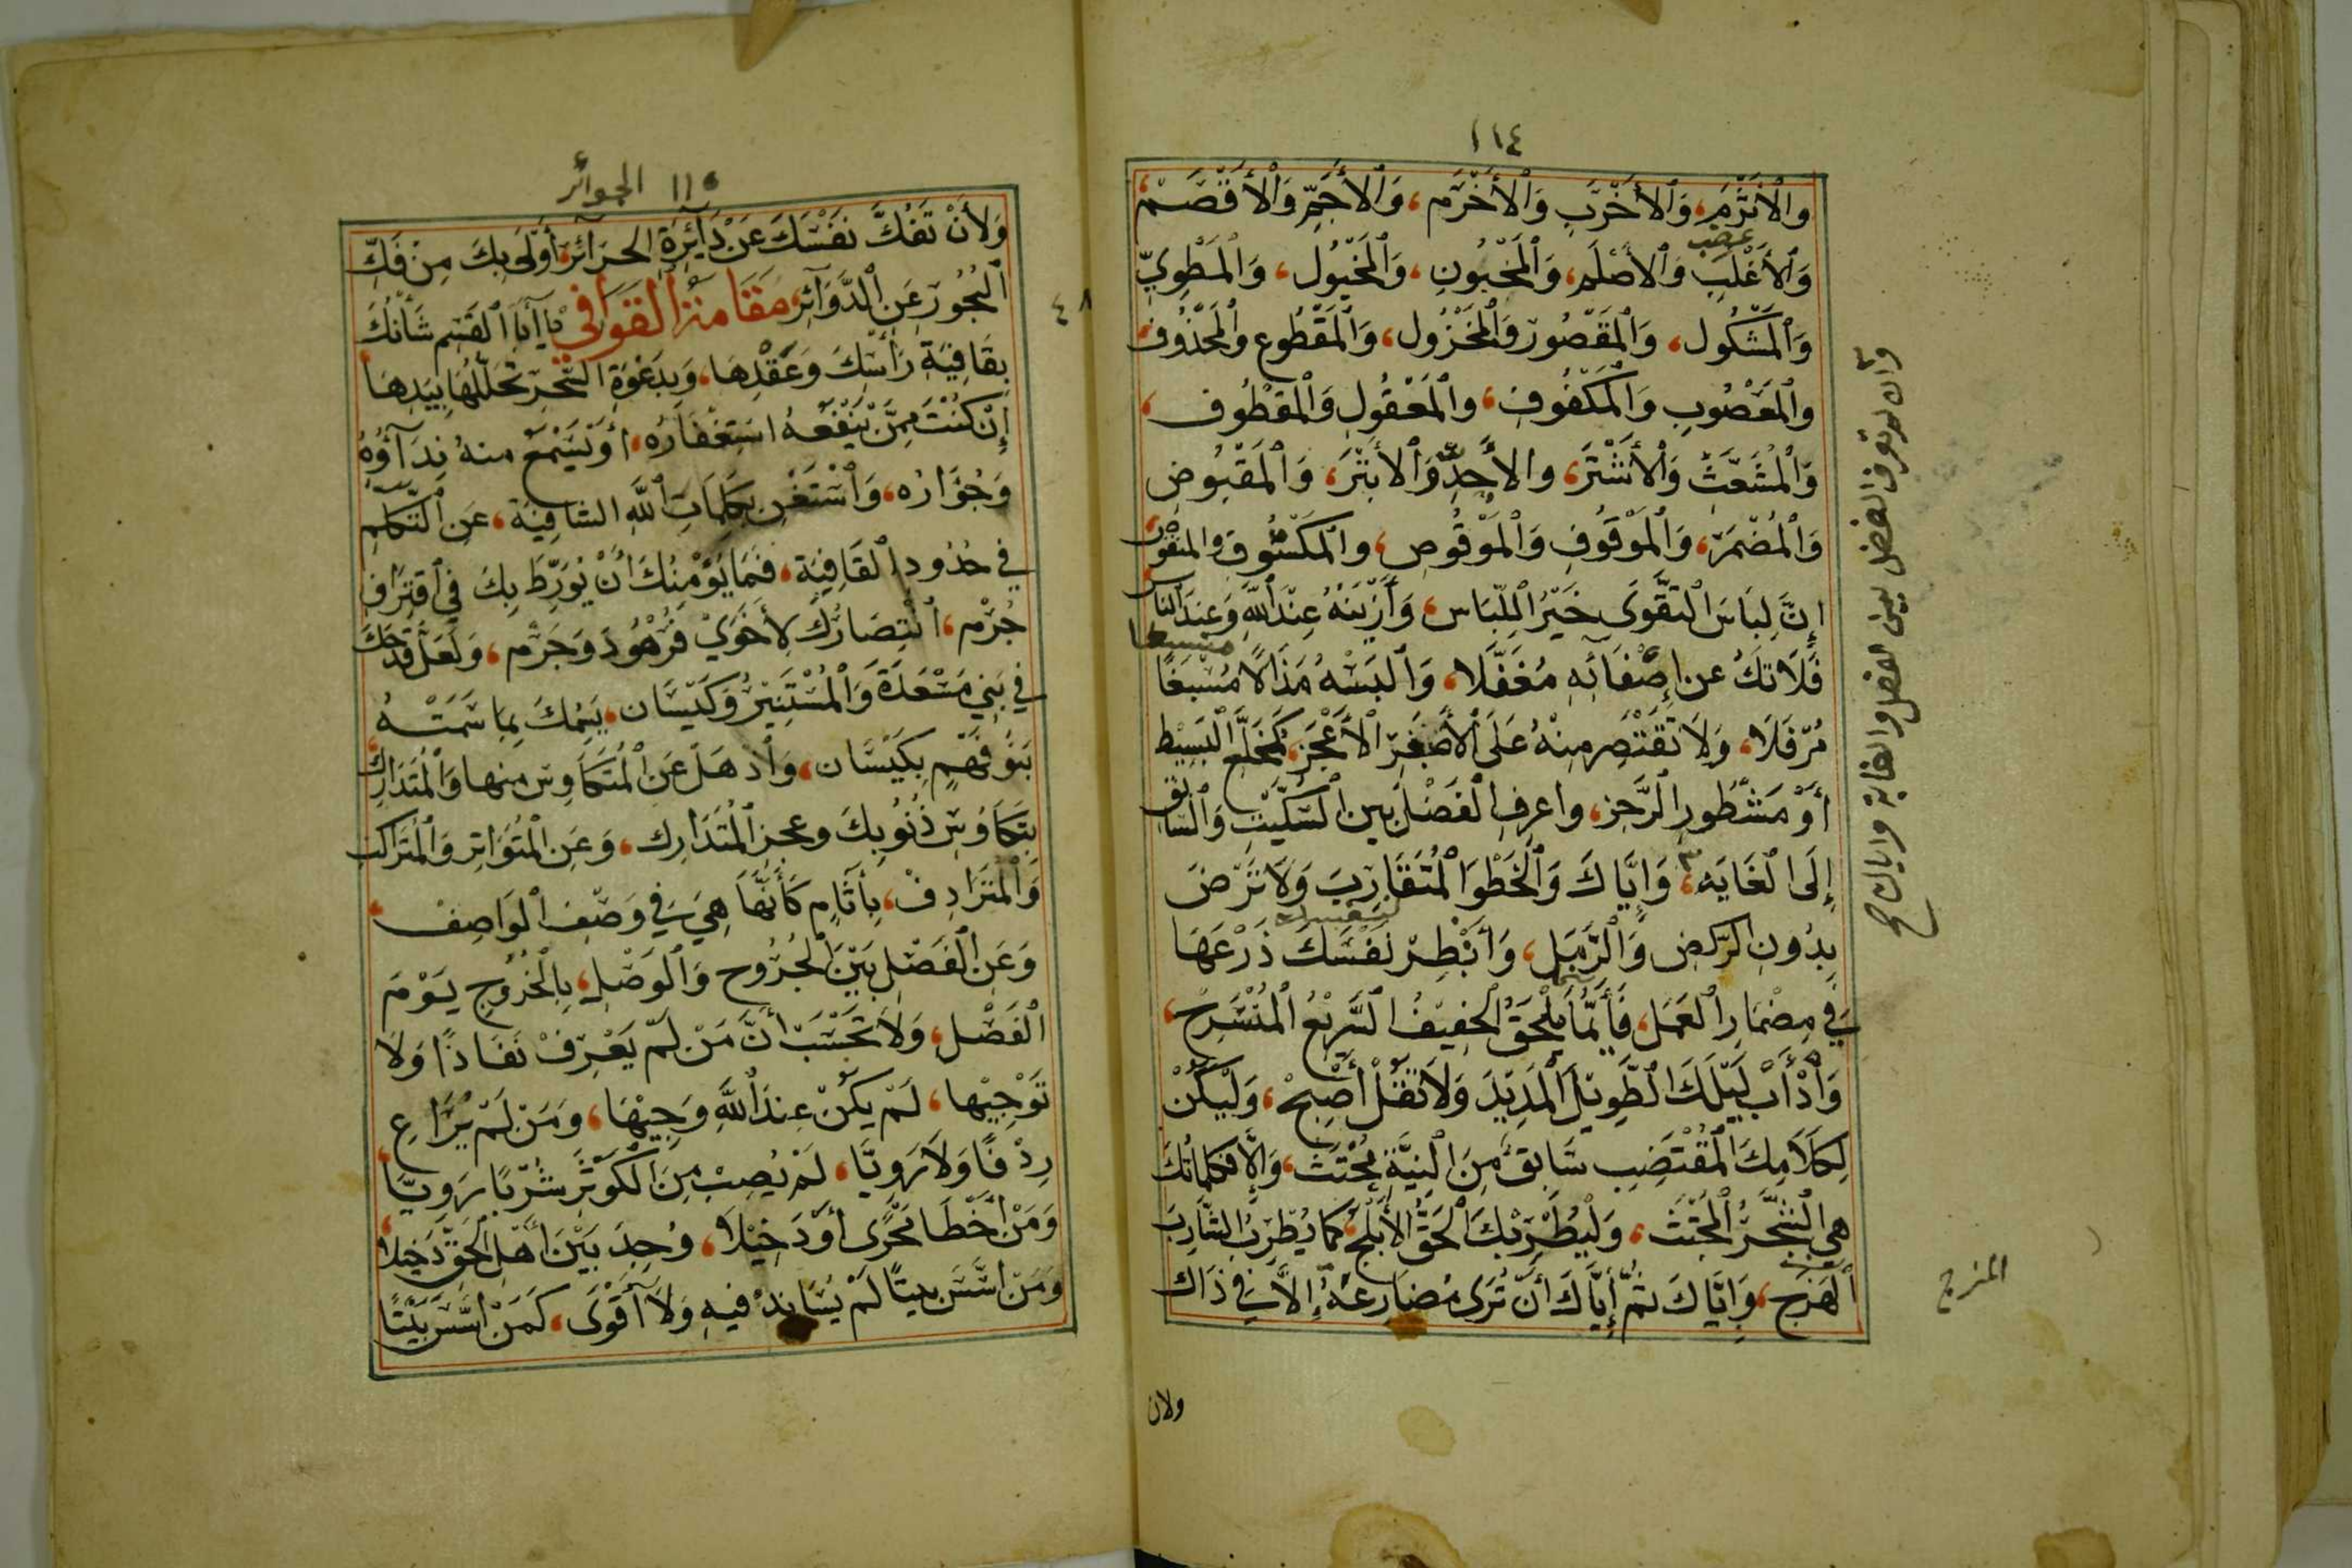 ١١٤
والأثرم، والأخرب والأخرم، والأجم والأقصم،
عضب
والأغلب والأصلم، والمخبون، والمخبول، والمطويّ
والمشكول، والمقصور والمخزول، والمقطوع والمحذوف،
والمعصوب والمكفوف، والمعقول والمقطوف،
والمشعّث والأشتر، والأحذّ والأبتر، والمقبوض
والمضمر، والموقوف والموقوص، والمكسوف والمنقوص،
إنّ لباس التقوى خير اللباس، وأزينه عند الله وعند الناس،
فلا تك عن إضفائه مغفّلا، والبسه مذالا مسبغا
مرفّلا، ولا تقتصر منه على الأصغر الأعجز، كمخلّع البسيط
أو مشطور الرجز، واعرف الفصل بين السكّيت والسابق
إلى الغاية، وإيّاك والخطو المتقارب ولا ترض
بدون الركض والرمل، وأبطر نفسك ذرعها
في مضمار العمل، فإنّما يلحق الخفيف السريع المنسرح،
وادأب ليلك الطويل المديد ولا تقل أصبح، وليكن
لكلامك المقتضب سابق من النيّة مجتث، وإلا فكلماتك
هي الشجر المجتث، وليطربك الحق الأبلج، كما يطرب الشارب
الهزج، وإيّاك ثم إيّاك أن ترى مضارعه إلا في ذاك
المنزج
ولان
١١٥ الجوائر
ولأن تفكّ نفسك عن دائرة الجرائر، أولى بك من فكّ
البحور عن الدوائر، مقامة القوافي يا أبا القسم شأنك
٤٨
بقافية رأسك وعقدها، وبدعوة السحر تحللها بيدها
إن كنت ممن ينفعه استغفاره، أو يسمع منه نداؤه
وجؤاره، واستغن بكلمات الله الشافية، عن التكلم
في حدود القافية، فما يؤمنك أن تورّط بك في اقتراف
جرم، انتصارك لأخوي فرهود وجرم، ولعل قدحك
في بني مسعدة والمستنير وكيسان، يسمك بما سمت به
بنو فهم بكيسان، واذهل عن المتكاوس منها والمتدارك،
بتكاوس ذنوبك وعجز المتدارك، وعن المتواتر والمتراكب
والمترادف، بآثام كأنها هي في وصف الواصف،
وعن الفصل بين الخروج والوصل، بالخروج يوم
الفصل، ولا تحسب أنّ من لم يعرف نفاذا ولا
توجيها، لم يكن عند الله وجيها، ومن لم يراع
ردفا ولا رويّا، لم يصب من الكوثر شربا رويّا،
ومن أخطأ مجرى أو دخيلا، وجد بين أهل الحق دخيلا،
ومن أسّس بيتا لم يساند فيه ولا أقوى، كمن أسّس بيتا